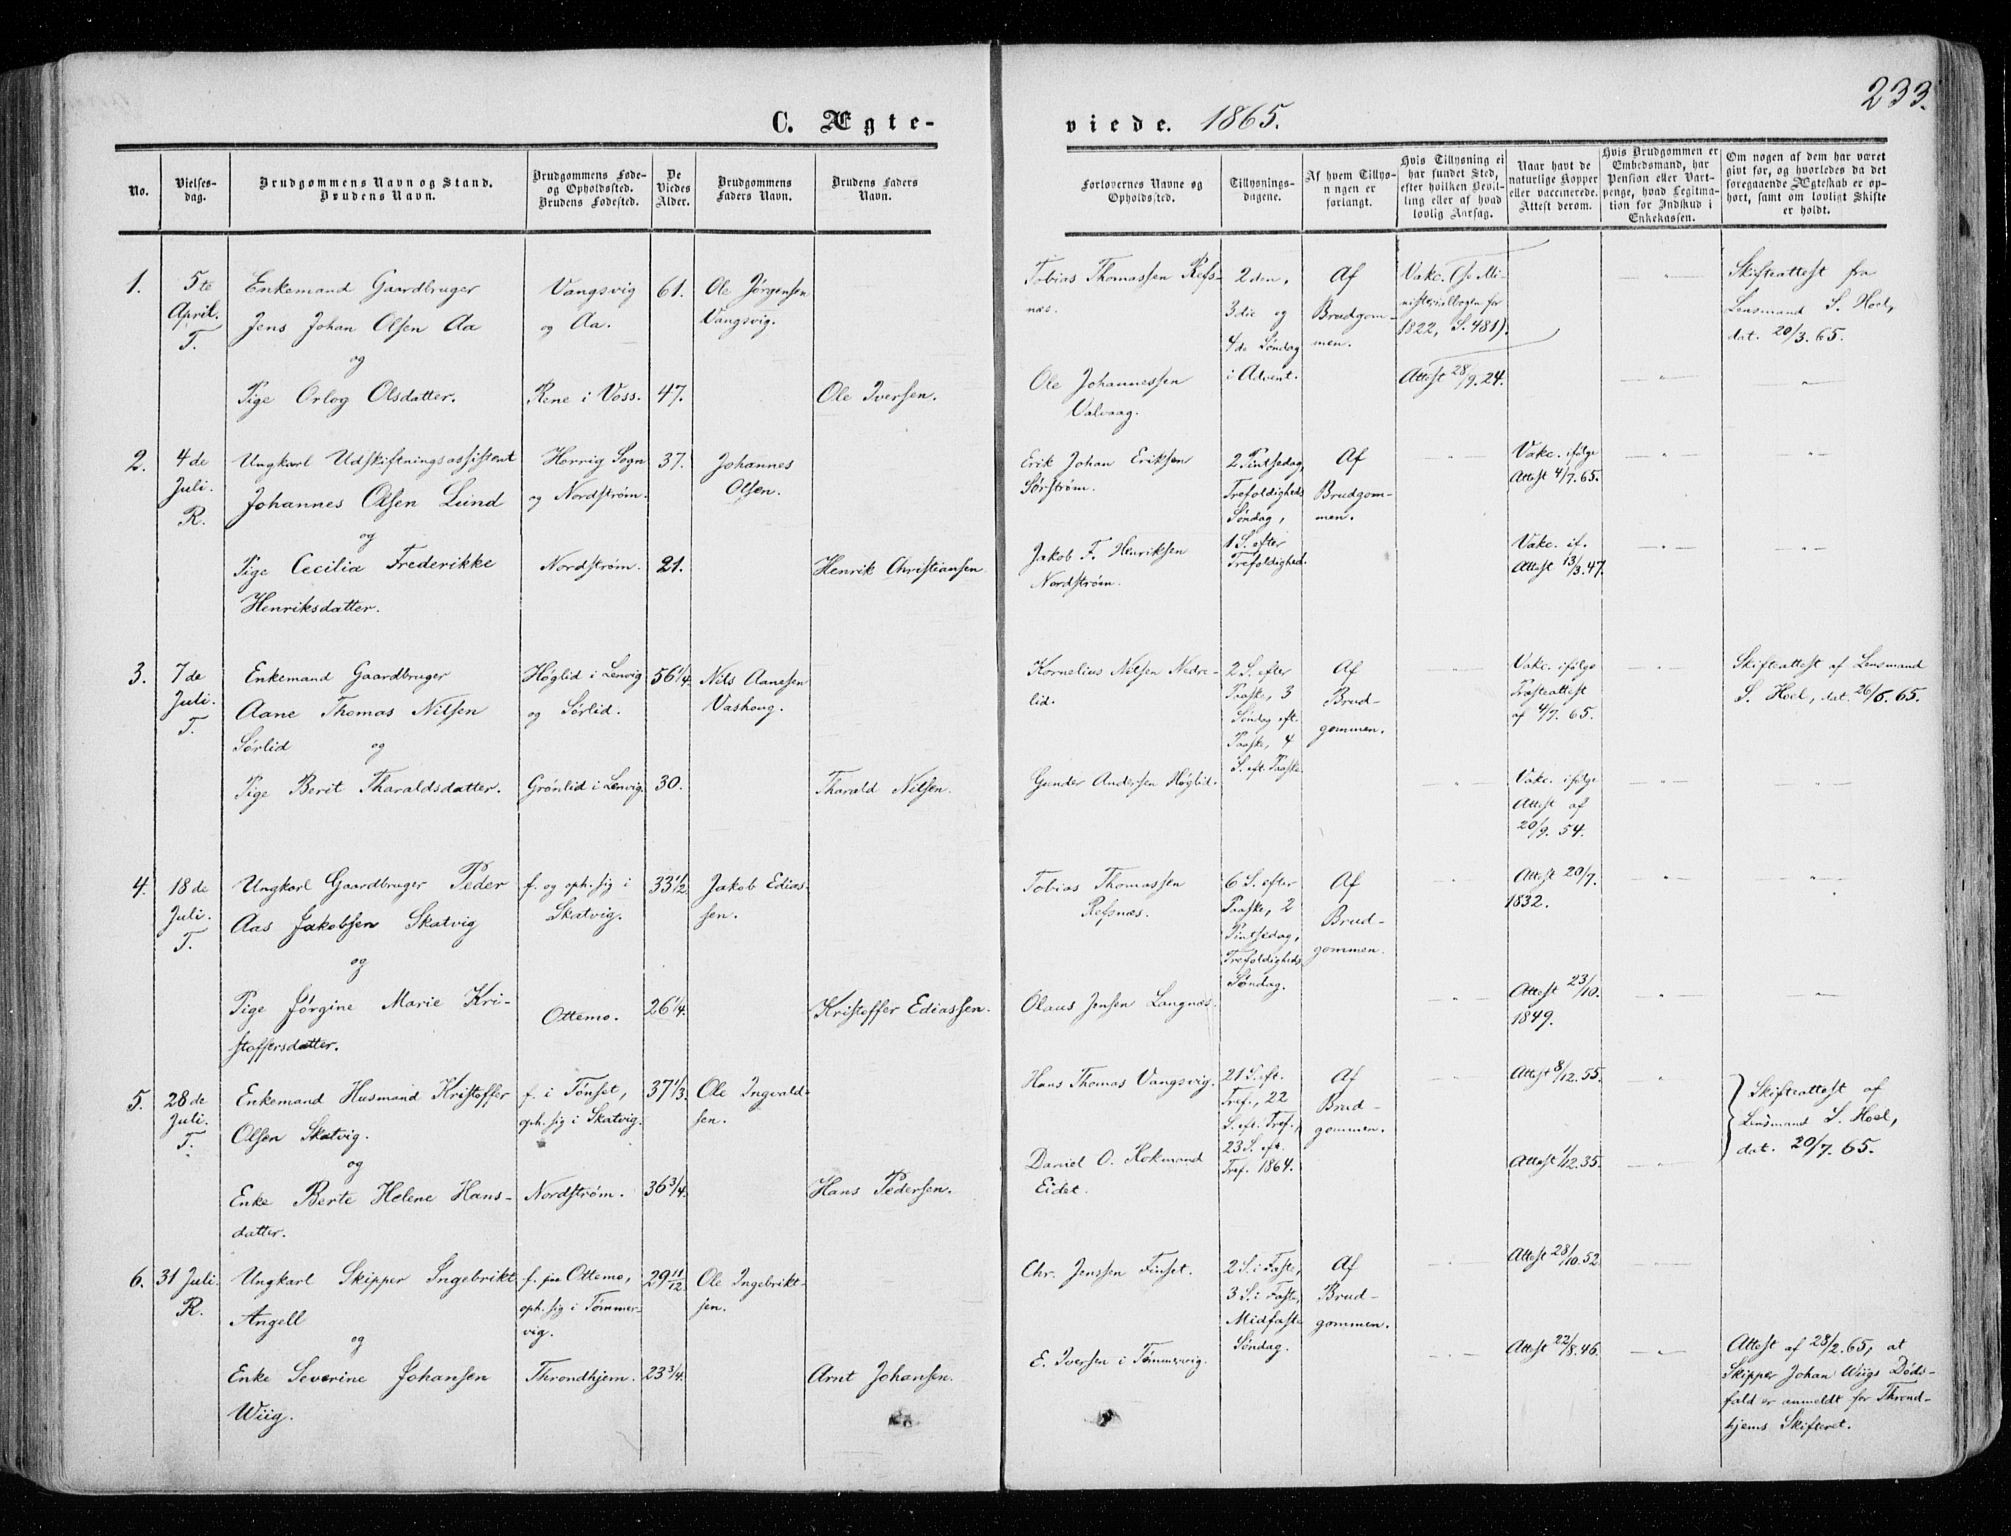 233.
C. Ægte-
viede. 1865.
No.
Vielses-
dag.
Brudgommens Navn og Stand.
Brudens Navn.
Brudgommens Føde-
og Opholdssted.
Brudens Fødested.
De
Viedes
Alder.
Brudgommens
Faders Navn.
Brudens Faders
Navn.
Forlovernes Navne og
Opholdssted.
Tillysnings-
dagene.
Af hvem Tillys-
ningen er
forlangt.
Hvis Tillysning ei
har fundet Sted,
efter hvilken Bevil-
ling eller af hvad
lovlig Aarsag.
Naar havt de
naturlige Kopper
eller vaccinerede.
Attest derom.
Hvis Brudgommen er
Embedsmand, har
Pension eller Vart-
penge, hvad Legitima-
tion for Indskud i
Enkekassen.
Om nogen af dem har været
givt før, og hvorledes da det
foregaaende Ægteskab er op-
hørt, samt om lovligt Skifte
er holdt.
1.
5te
April.
T.
Enkemand Gaardbruger
Jens Johan Olsen Aa
og
Pige Orlog Olsdatter.
Vangsvig
og Aa.
Rene i Voss.
61.
47.
Ole Jørgensen
Vangsvig.
Ole Iversen.
Tobias Thomassen Refs-
næs.
Ole Johannessen
Valvaag.
2den,
3die og
4de Søndag
i Advent.
Af
Brudgom-
men.
Vakc. (se Mi-
nisterialbogen for
1822, S. 481).
Attest 28/9. 24.
Skifteattest fra
Lensmand S. Hoel,
dat. 20/3. 65.
2.
4de
Juli.
R.
Ungkarl Udskiftningsassistent
Johannes Olsen Lund
og
Pige Cecilia Frederikke
Henriksdatter.
Herrig Sogn
og Nordstrøm.
Nordstrøm.
37.
21.
Johannes
Olsen.
Henrik Christiansen
Erik Johan Eriksen
Sørstrøm.
Jakob F. Henriksen
Nordstrøm.
2 Pintsedag,
Trefoldigheds
Søndag,
1 S. efter
Trefoldighed.
Af
Brudgom-
men.
Vakc. ifølge
Attest 4/7. 65.
Vakc. if.
Attest 13/3. 47.
3.
7de
Juli.
T.
Enkemand Gaardbruger
Aane Thomas Nilsen
Sørlid og
Pige Berit Tharaldsdatter.
Høglid i Lenvig
og Sørlid.
Grønlid i Lenvig.
56 1/4.
30.
Nils Aanesen
Vashoug.
Tharald Nilsen.
Kornelius Nilsen Nedre-
lid.
Gunder Andersen Høglid.
2 S. efter
Paaske, 3
Søndag eft.
Paaske, 4
S. eft. Paaske
Af
Brud-
gommen.
Vakc. ifølge
Præsteattest
af 4/7. 65.
Vakc. ifølge
Attest af
20/9. 54.
Skifteattest af Lensmand
S. Hoel, dat. 26/6. 65.
4.
18de
Juli.
T.
Ungkarl Gaardbruger Peder
Aas Jakobsen Skatvig
og
Pige Jørgine Marie Kri-
stoffersdatter.
f. og oph. sig i
Skatvig.
Ottemo.
33 1/2
26 1/4.
Jakob Edias-
sen.
Kristoffer Ediassen.
Tobias Thomassen
Refsnæs.
Olaus Jensen Langnæs.
6 S. efter
Paaske, 2
Pintsedag,
Trefoldigheds
Søndag.
Af
Brud-
gommen.
Attest 20/7.
1832.
Attest 23/10.
1849.
5.
28de
Juli.
T.
Enkemand Husmand Kristoffer
Olsen Skatvig.
og
Enke Berte Helene Hans-
datter.
f. i Tønset,
oph. sig i Skatvig.
Nordstrøm.
37 1/3.
36 3/4.
Ole Ingvald-
sen.
Hans Pedersen.
Hans Thomas Vangsvig.
Daniel O. Rokmand
Eidet.
21 S. eft.
Tref., 22
S. eft. Tref.,
23 S. eft.
Tref. 1864.
Af
Brud-
gommen.
Attest 8/12. 55.
Attest 1/12. 35.
Skifteattest af
Lensmand S. Hoel,
dat. 20/7. 65.
6.
31 Juli.
R.
Ungkarl Skipper Ingebrikt
Angell
og
Enke Severine Johansen
Wiig.
f. paa Ottemo,
oph. sig i Tømmer-
vig.
Throndhjem.
29 11/12
23 3/4.
Ole Ingebrikt-
sen.
Arnt Johansen.
Chr. Jenssen Finset.
E. Iversen i Tømmervig.
2 S. i Faste,
3 S. i Faste,
Midfaste
Søndag.
Af
Brud-
gommen.
Attest 28/10. 52.
Attest 22/8. 46.
Attest af 28/2. 65, at
Skipper Johan Wiigs Døds-
fald er anmeldt for Thrond-
hjems Skifteret.